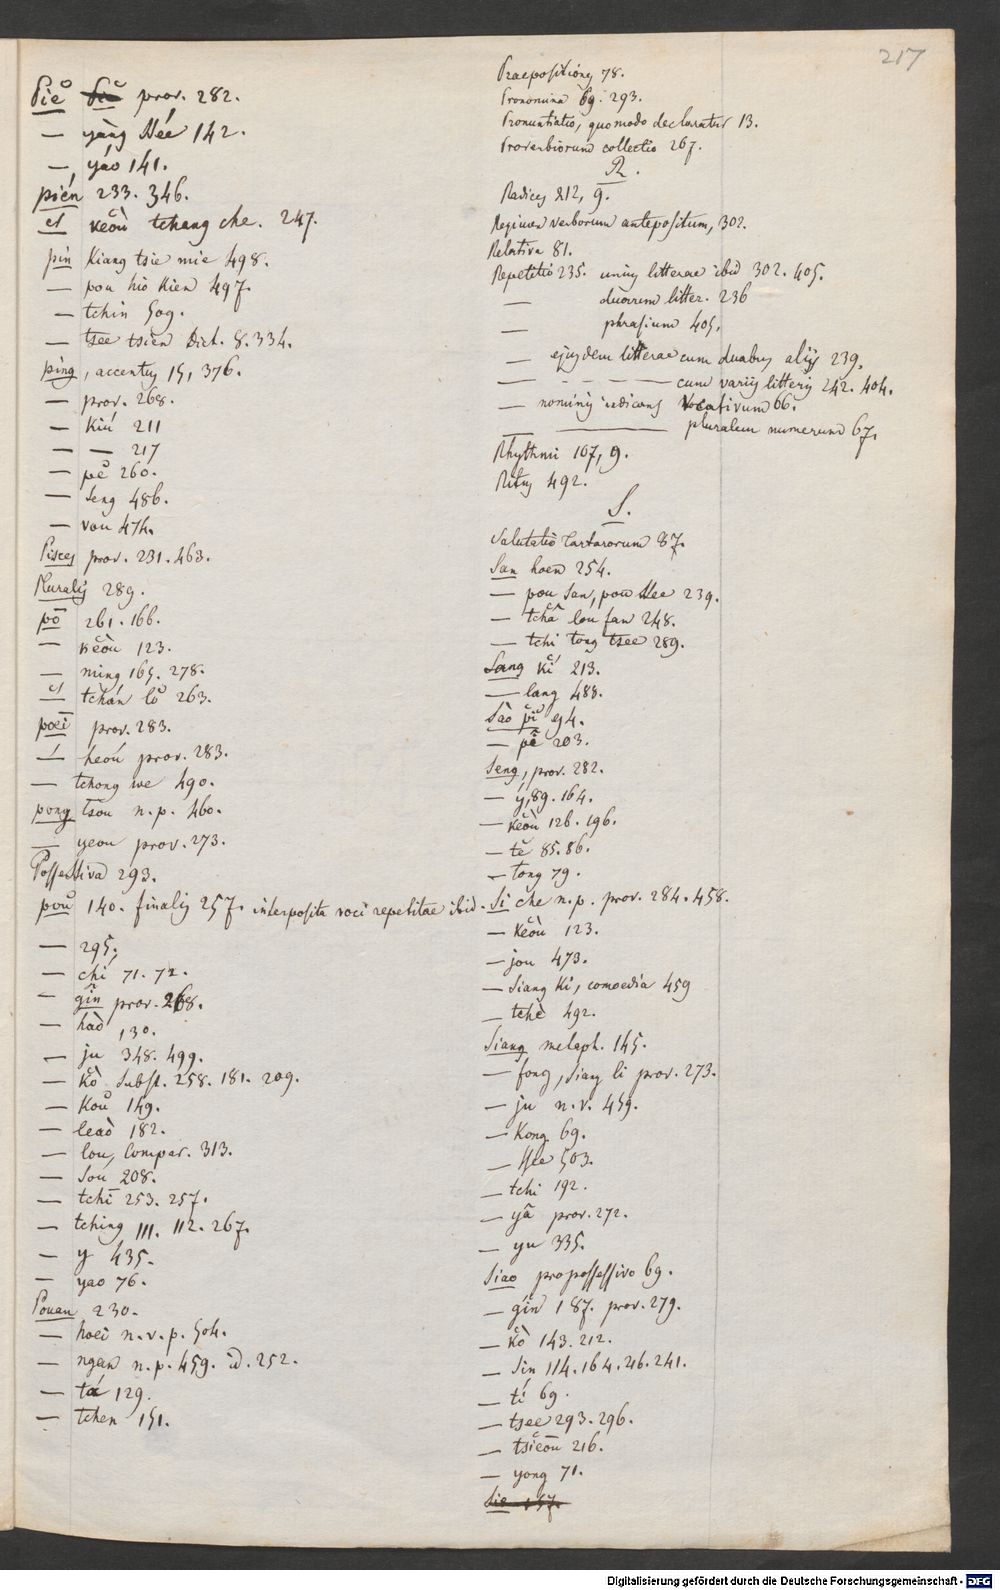 217
Piĕ prov. 282.
— yàng 142.
—, yáo 141.
pién 233. 346.
et keòu tchang che. 247.
pin Kiang tsie mie 498.
— pou hio Kien 497.
— tchin 509.
— tsee tsien Dict. 8. 334.
ping, accentus 15, 376.
— prov. 268.
— Kiú 211
— — 217
— pĕ 260.
— seng 486.
— vou 474.
Pisces prov. 231. 463.
Pluralis 289.
pō 261. 166.
— keòu 123.
— ming 165. 278.
et tchán lŏ 263.
poēi prov. 283.
— heóu prov. 283.
— tchong we 490.
pong tsou n.p. 460.
— yeou prov. 273.
Possessiva 293.
poŭ 140. finalis 257. interposita voci repetitae ibid.
— 295,
— chi 71. 72.
— gîn prov. 268.
— haò 130.
— ju 348. 499.
— Kŏ subst. 258. 181. 209.
— Koŭ 149.
— leaò 182.
— lou, Compar. 313.
— Soú 208.
— tchī 253. 257.
— tching 111. 112. 267.
— y 435.
— yao 76.
Pouan 230.
— hoei n.v.p. 504.
— ngan n.p. 459. id. 252.
— tá 129.
— tchen 151.
Praepositiones 78.
Pronomina 69. 293.
Pronuntiatio, quomodo declaratur 13.
Proverbiorum collectio 267.
R.
Radices 212, 9.
Regimen verborum antepositum, 302.
Relativa 81.
Repetitio 235. unius litterae ibid 302. 405.
— duarum litter. 236
— phrasium 405.
— ejusdem litterae cum duabus aliis 239.
— - - - — cum variis litteris 242. 404.
— nominis indicans Vocativum 66.
— — pluralem numerum 67.
Rhythmi 107, 9.
Ritus 492.
S.
Salutatio Tartarorum 87.
San hoen 254.
— pou San, pou 239.
— tchâ lou fan 248.
— tchi tong tsee 289.
Sang Kí 213.
— lang 488.
Sào pĭ 94.
— pĕ 203.
Seng, prov. 282.
— ý, 89. 164.
— keòu 126. 196.
— tĕ 85. 86.
— tong 79.
Si che n.p. prov. 284. 458.
— Keòu 123.
— jou 473.
— Siang Ki, comoedia 459
— tchĕ 492.
Siang metaph. 145.
— fong, siang li prov. 273.
— ju n.v. 459.
— Kong 69.
— 503.
— tchi 192.
— yâ prov. 272.
— yu 335.
Siao pro possessivo 69.
— gîn 187. prov. 279.
— kŏ 143. 212.
— Sin 114. 164. 26. 241.
— tí 69.
— tsee 293. 296.
— tsieōu 216.
— yong 71.
Digitalisierung gefördert durch die Deutsche Forschungsgemeinschaft - DFG